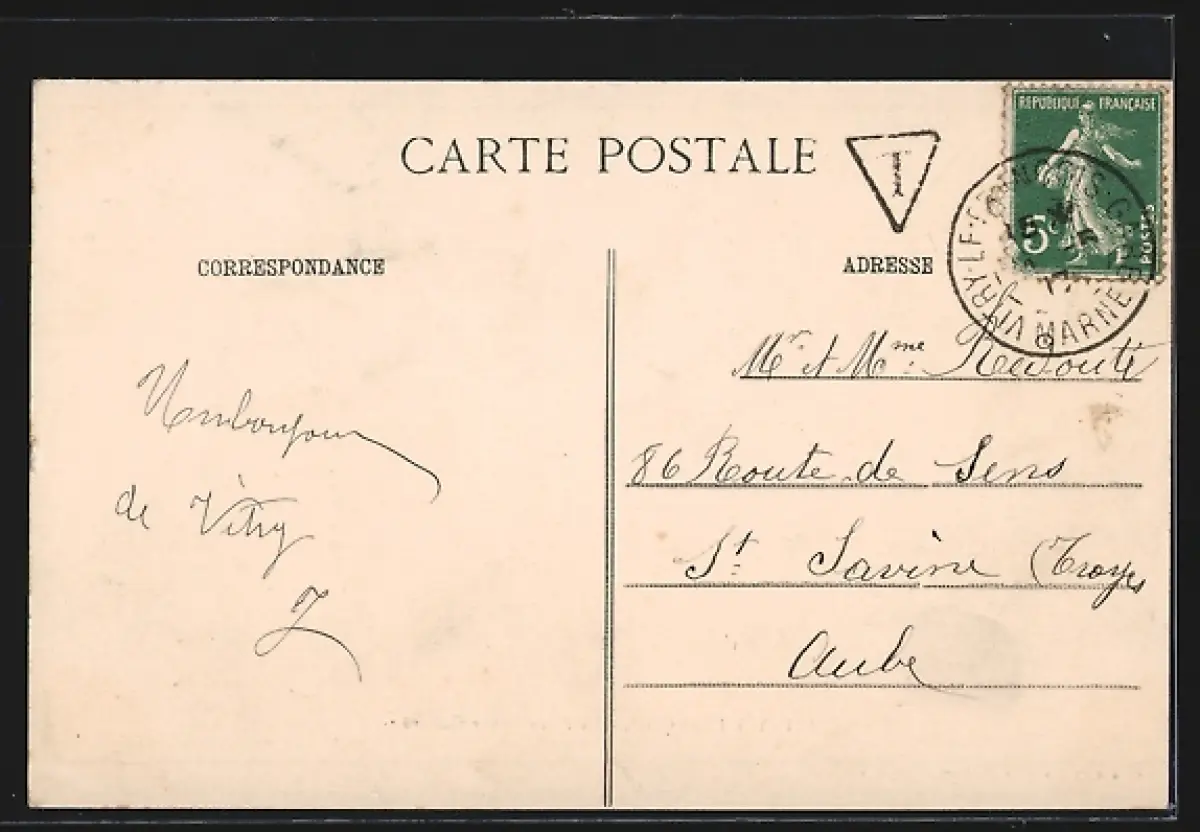 CARTE POSTALE
T
REPUBLIQUE FRANÇAISE
5c
POSTES
VITRY-LE-FRANÇOIS-GARE
MARNE
CORRESPONDANCE
ADRESSE
Un bonjour
de Vitry
Mr. et Mme. Redouté
86 Route de Sens
St. Savine (Troyes
Aube